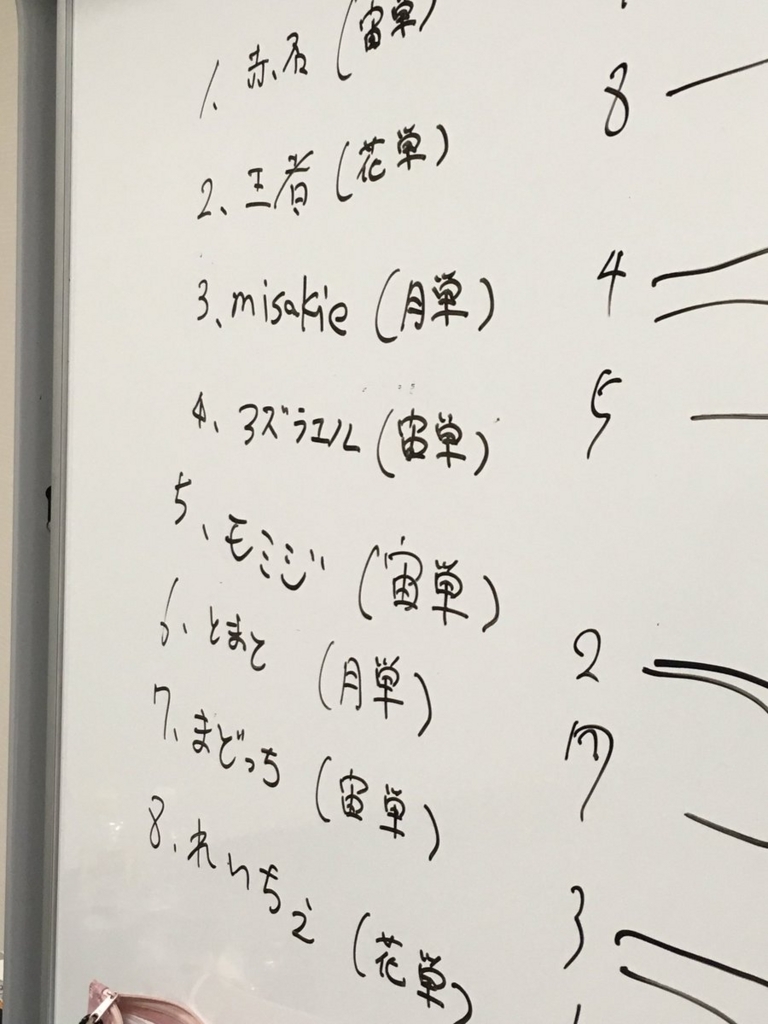 1、赤石 (宙単) 8
2、王者 (花単)
3、misakie (月単) 4
4、ヨズラエル (宙単) 5
5、モミジ (宙単)
6、とまと (月単) 2
7、まどっち (宙単) 7
8、れいちぇ (花単) 3